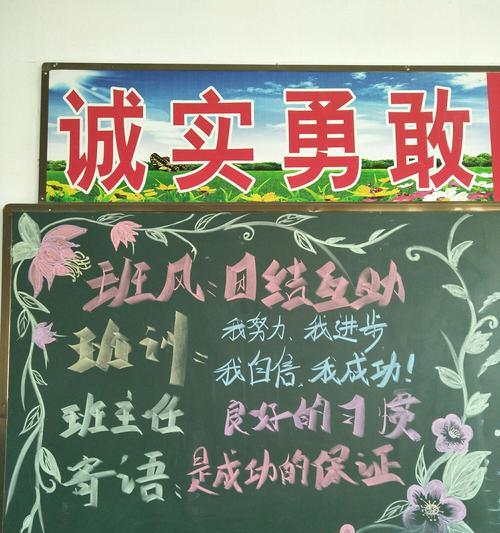 诚实勇敢
班风:团结互助
班训:我努力、我进步
我自信、我成功!
班主任 良好的习惯
寄语:是成功的保证